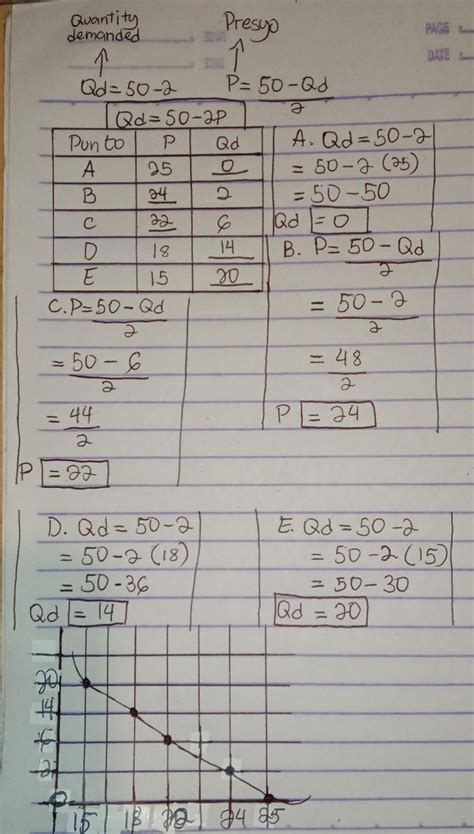 Quantity demanded
Presyo
PAGE :
DATE :
Qd = 50 - 2
P = 50 - Qd / 2
Qd = 50 - 2P
Punto P Qd
A 25 0
B 24 2
C 22 6
D 18 14
E 15 20
A. Qd = 50 - 2
= 50 - 2 (25)
= 50 - 50
Qd = 0
B. P = 50 - Qd / 2
= 50 - 2 / 2
= 48 / 2
P = 24
C. P = 50 - Qd / 2
= 50 - 6 / 2
= 44 / 2
P = 22
D. Qd = 50 - 2
= 50 - 2 (18)
= 50 - 36
Qd = 14
E. Qd = 50 - 2
= 50 - 2 (15)
= 50 - 30
Qd = 20
20
14
6
2
0
15 18 22 24 25